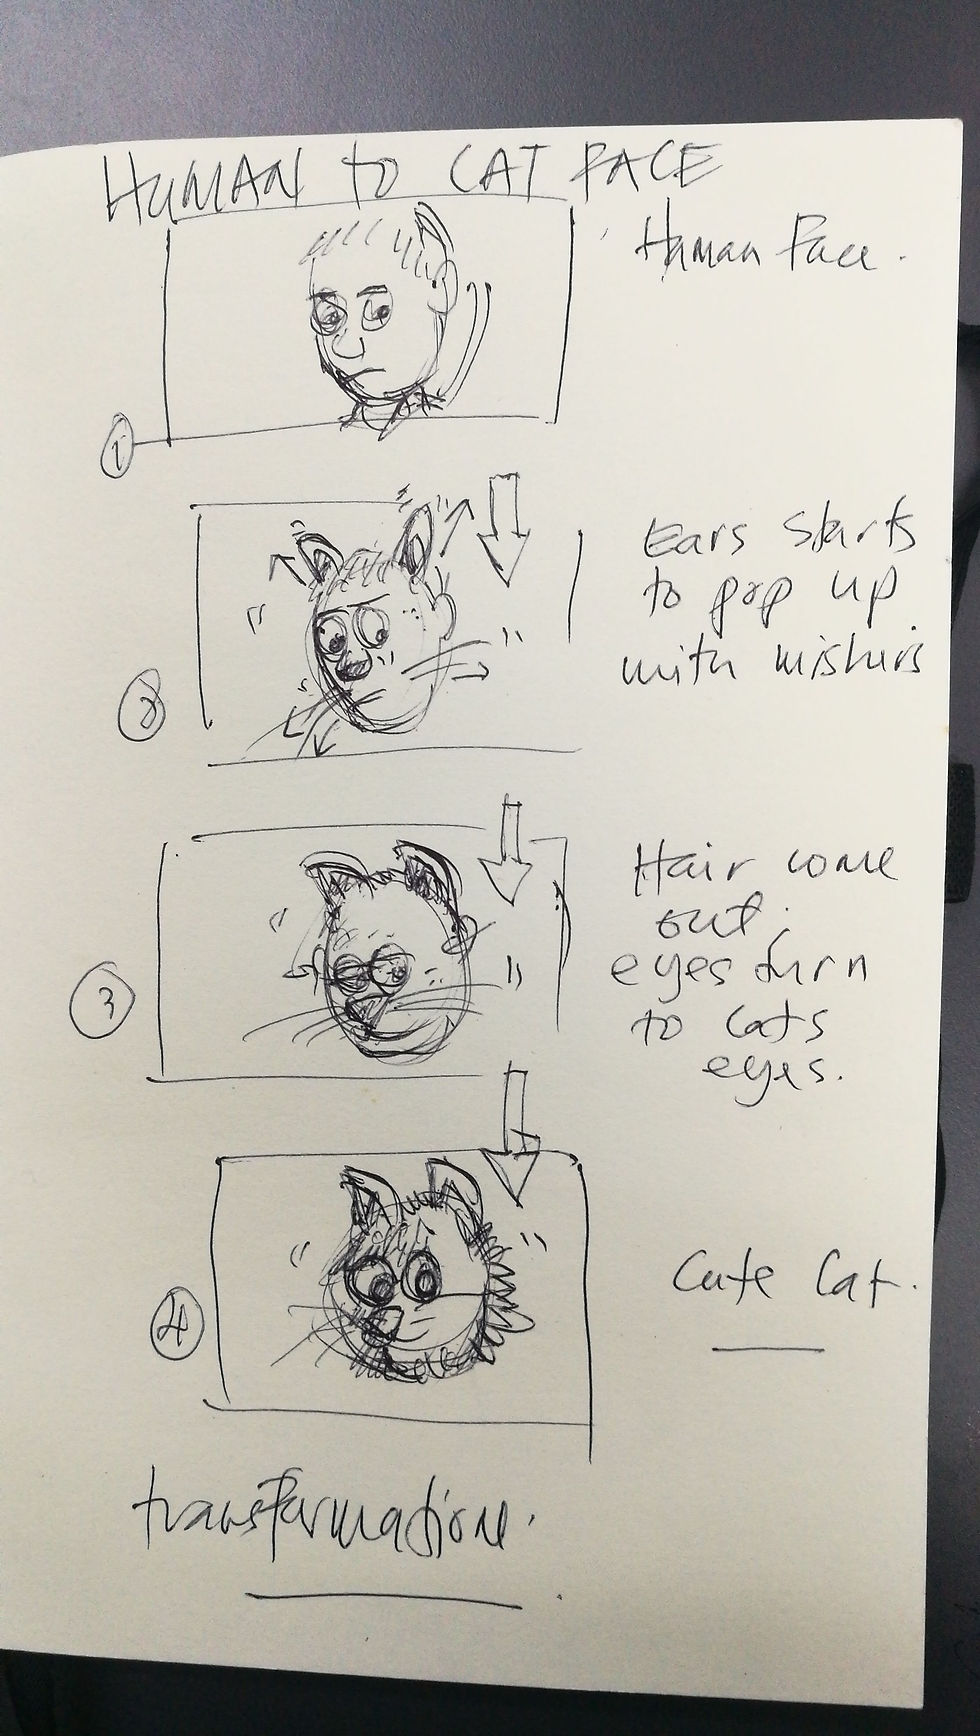 HUMAN to CAT FACE
Human Face.
1
Ears starts
to pop up
with wishirs
2
Hair come
out.
eyes turn
to cats
eyes.
3
Cute Cat.
4
transformation.